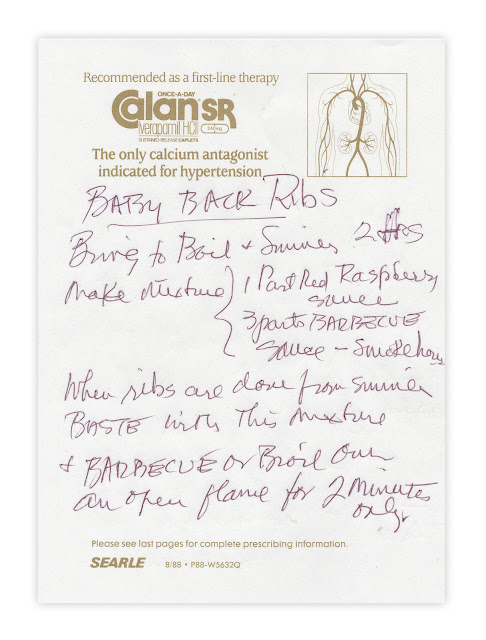 Recommended as a first-line therapy
ONCE-A-DAY
Calan SR
verapamil HCl 240 mg
SUSTAINED-RELEASE CAPLETS
The only calcium antagonist
indicated for hypertension
BABY BACK RIBS
Bring to Boil + Simmer 2 Hrs
Make Mixture { 1 Part Red Raspberry
sauce
3 parts BARBECUE
Sauce -
When ribs are done from simmer
BASTE with This mixture
+ BARBECUE or Broil Over
an open flame for 2 Minutes
only
Please see last pages for complete prescribing information.
SEARLE 8/88 • P88-W5632Q